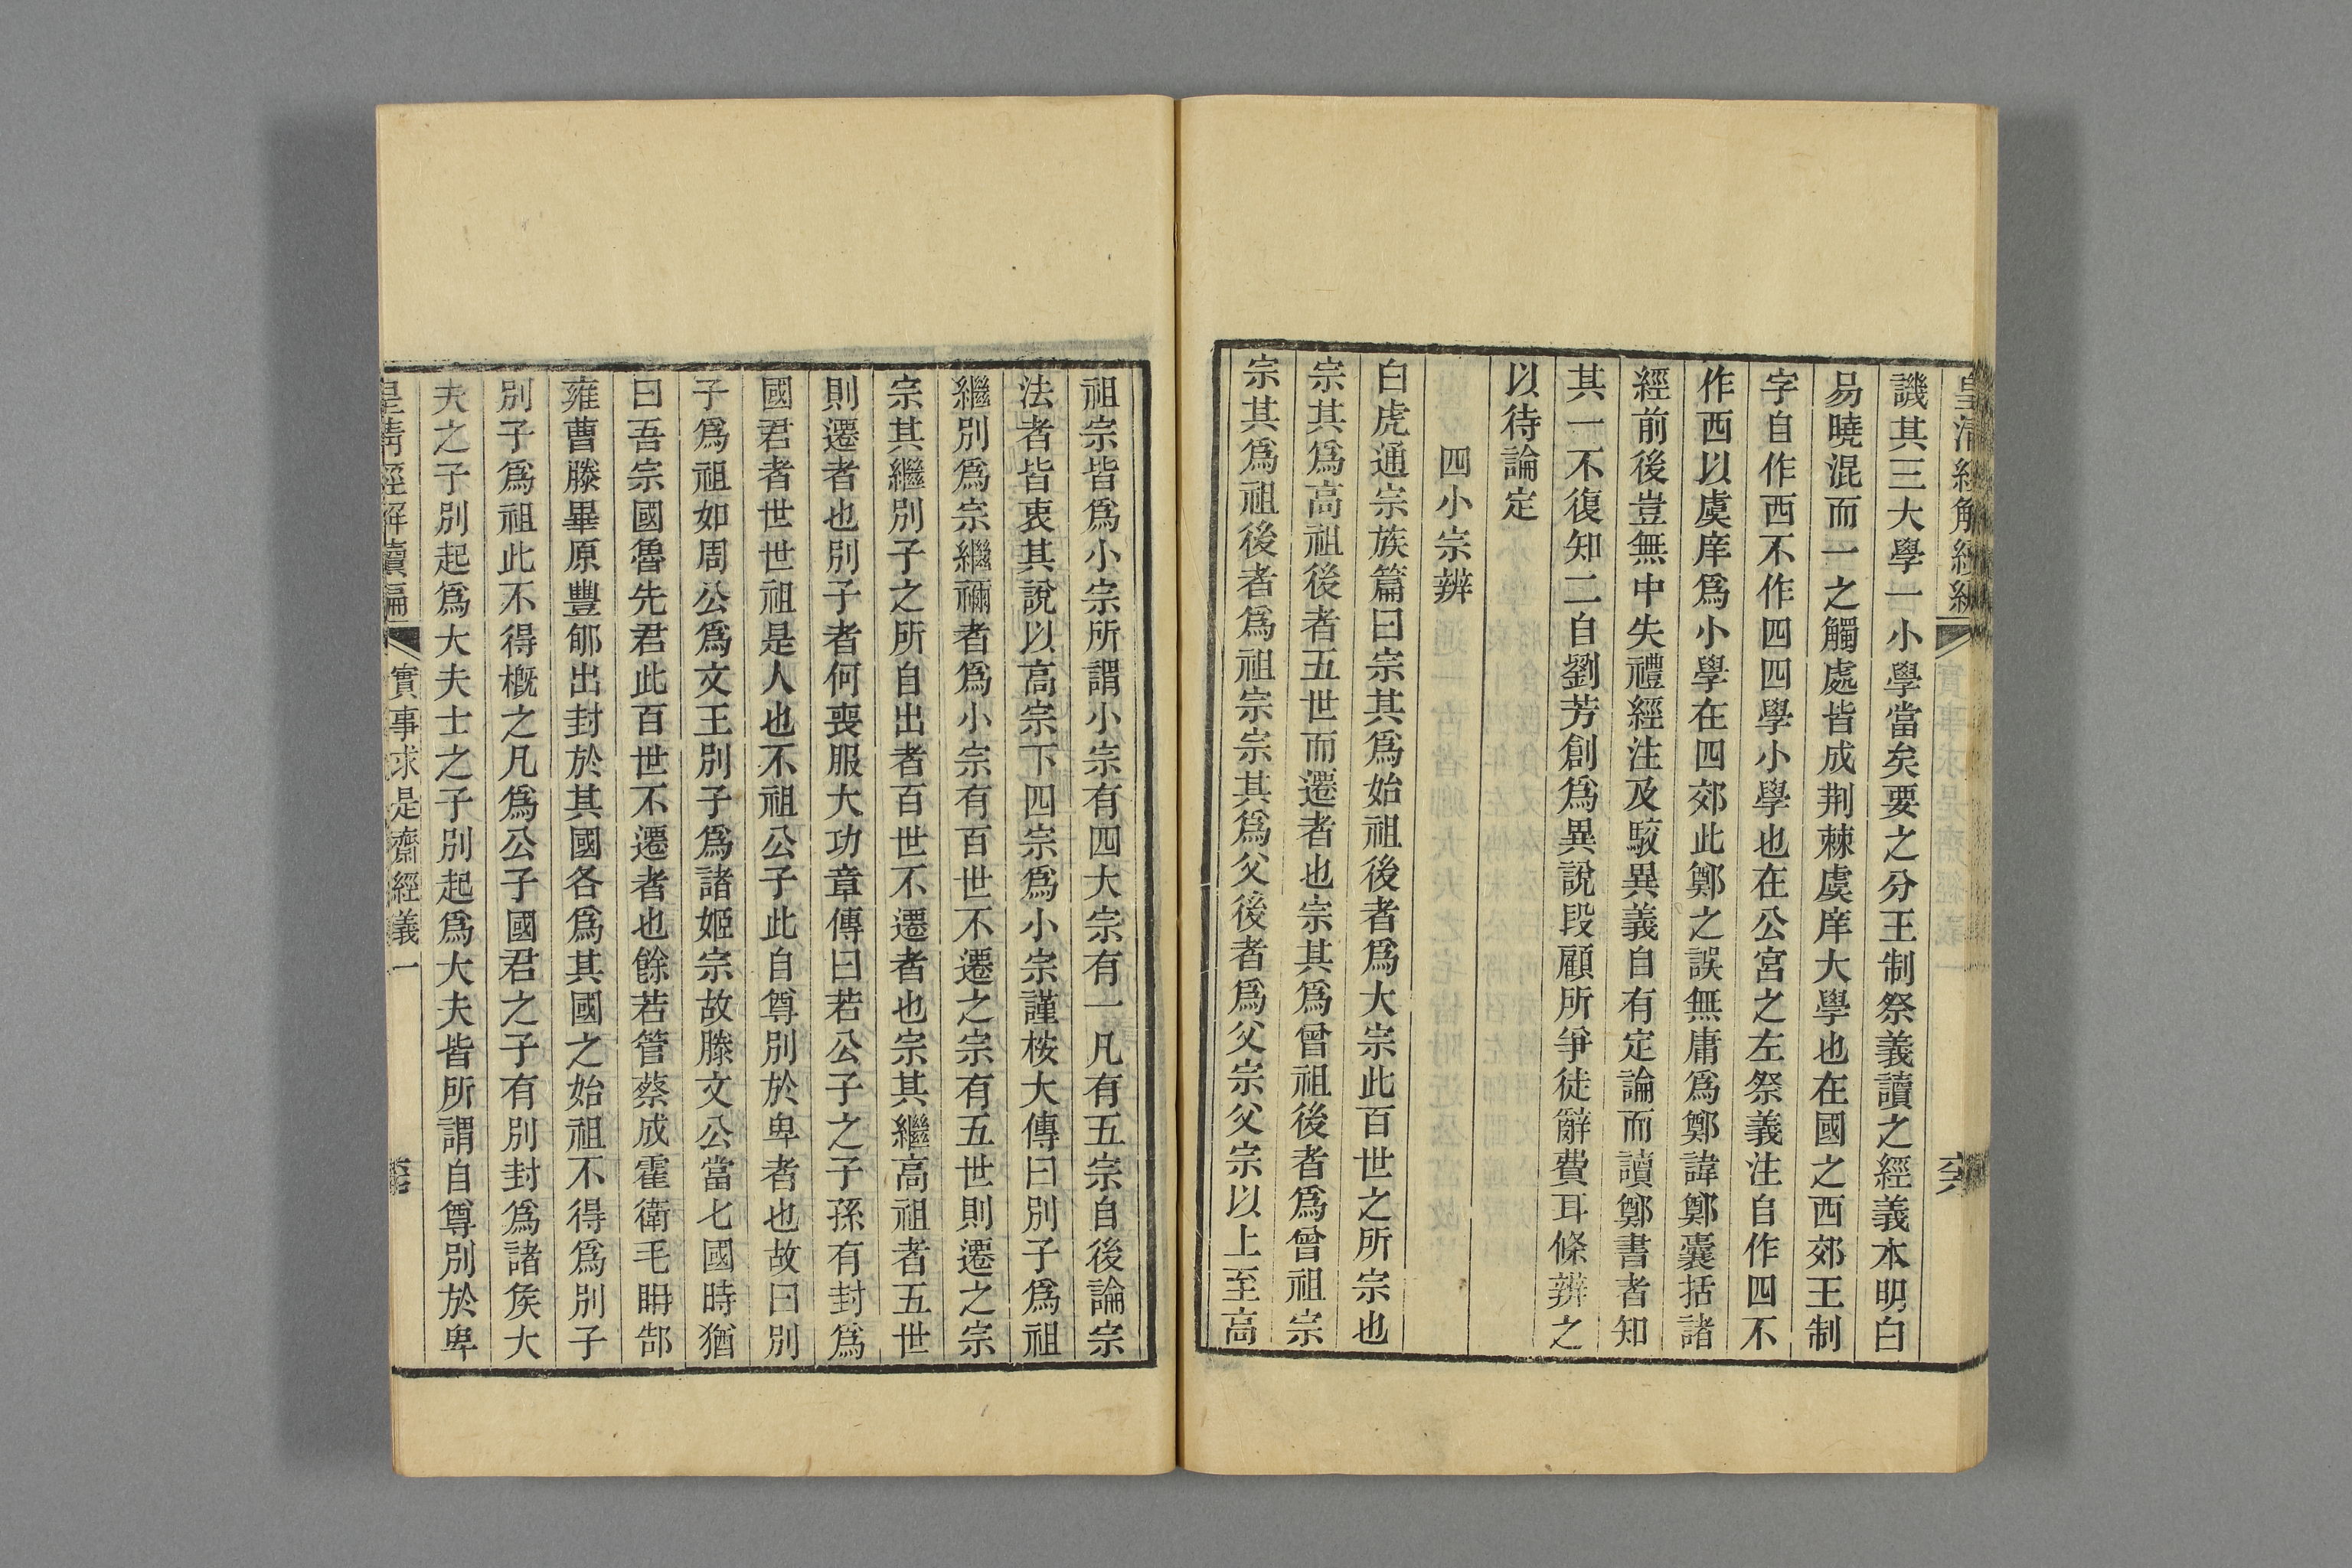 譏其三大學一小學當矣要之分王制祭義讀之經義本明白
易曉混而一之觸處皆成荆棘虞庠大學也在國之西郊王制
字自作西不作四四學小學也在公宮之左祭義注自作四不
作西以虞庠爲小學在四郊此鄭之誤無庸爲鄭諱鄭囊括諸
經前後豈無中失禮經注及駮異義自有定論而讀鄭書者知
其一不復知二自劉芳創爲異說段顧所爭徒辭費耳條辨之
以待論定
四小宗辨
白虎通宗族篇曰宗其爲始祖後者爲大宗此百世之所宗也
宗其爲高祖後者五世而遷者也宗其爲曾祖後者爲曾祖宗
宗其爲祖後者爲祖宗宗其爲父後者爲父宗父宗以上至高
祖宗皆爲小宗所謂小宗有四大宗有一凡有五宗自後論宗
法者皆衷其說以高宗下四宗爲小宗謹桉大傳曰別子爲祖
繼別爲宗繼禰者爲小宗有百世不遷之宗有五世則遷之宗
宗其繼別子之所自出者百世不遷者也宗其繼高祖者五世
則遷者也別子者何喪服大功章傳曰若公子之子孫有封爲
國君者世世祖是人也不祖公子此自尊別於卑者也故曰別
子爲祖如周公爲文王別子爲諸姬宗故滕文公當七國時猶
曰吾宗國魯先君此百世不遷者也餘若管蔡成霍衛毛耼郜
雍曹滕畢原豐郇出封於其國各爲其國之始祖不得爲別子
別子爲祖此不得槪之凡爲公子國君之子有別封爲諸矦大
夫之子別起爲大夫士之子別起爲大夫皆所謂自尊別於卑
皇清經解續編 實事求是齋經義一